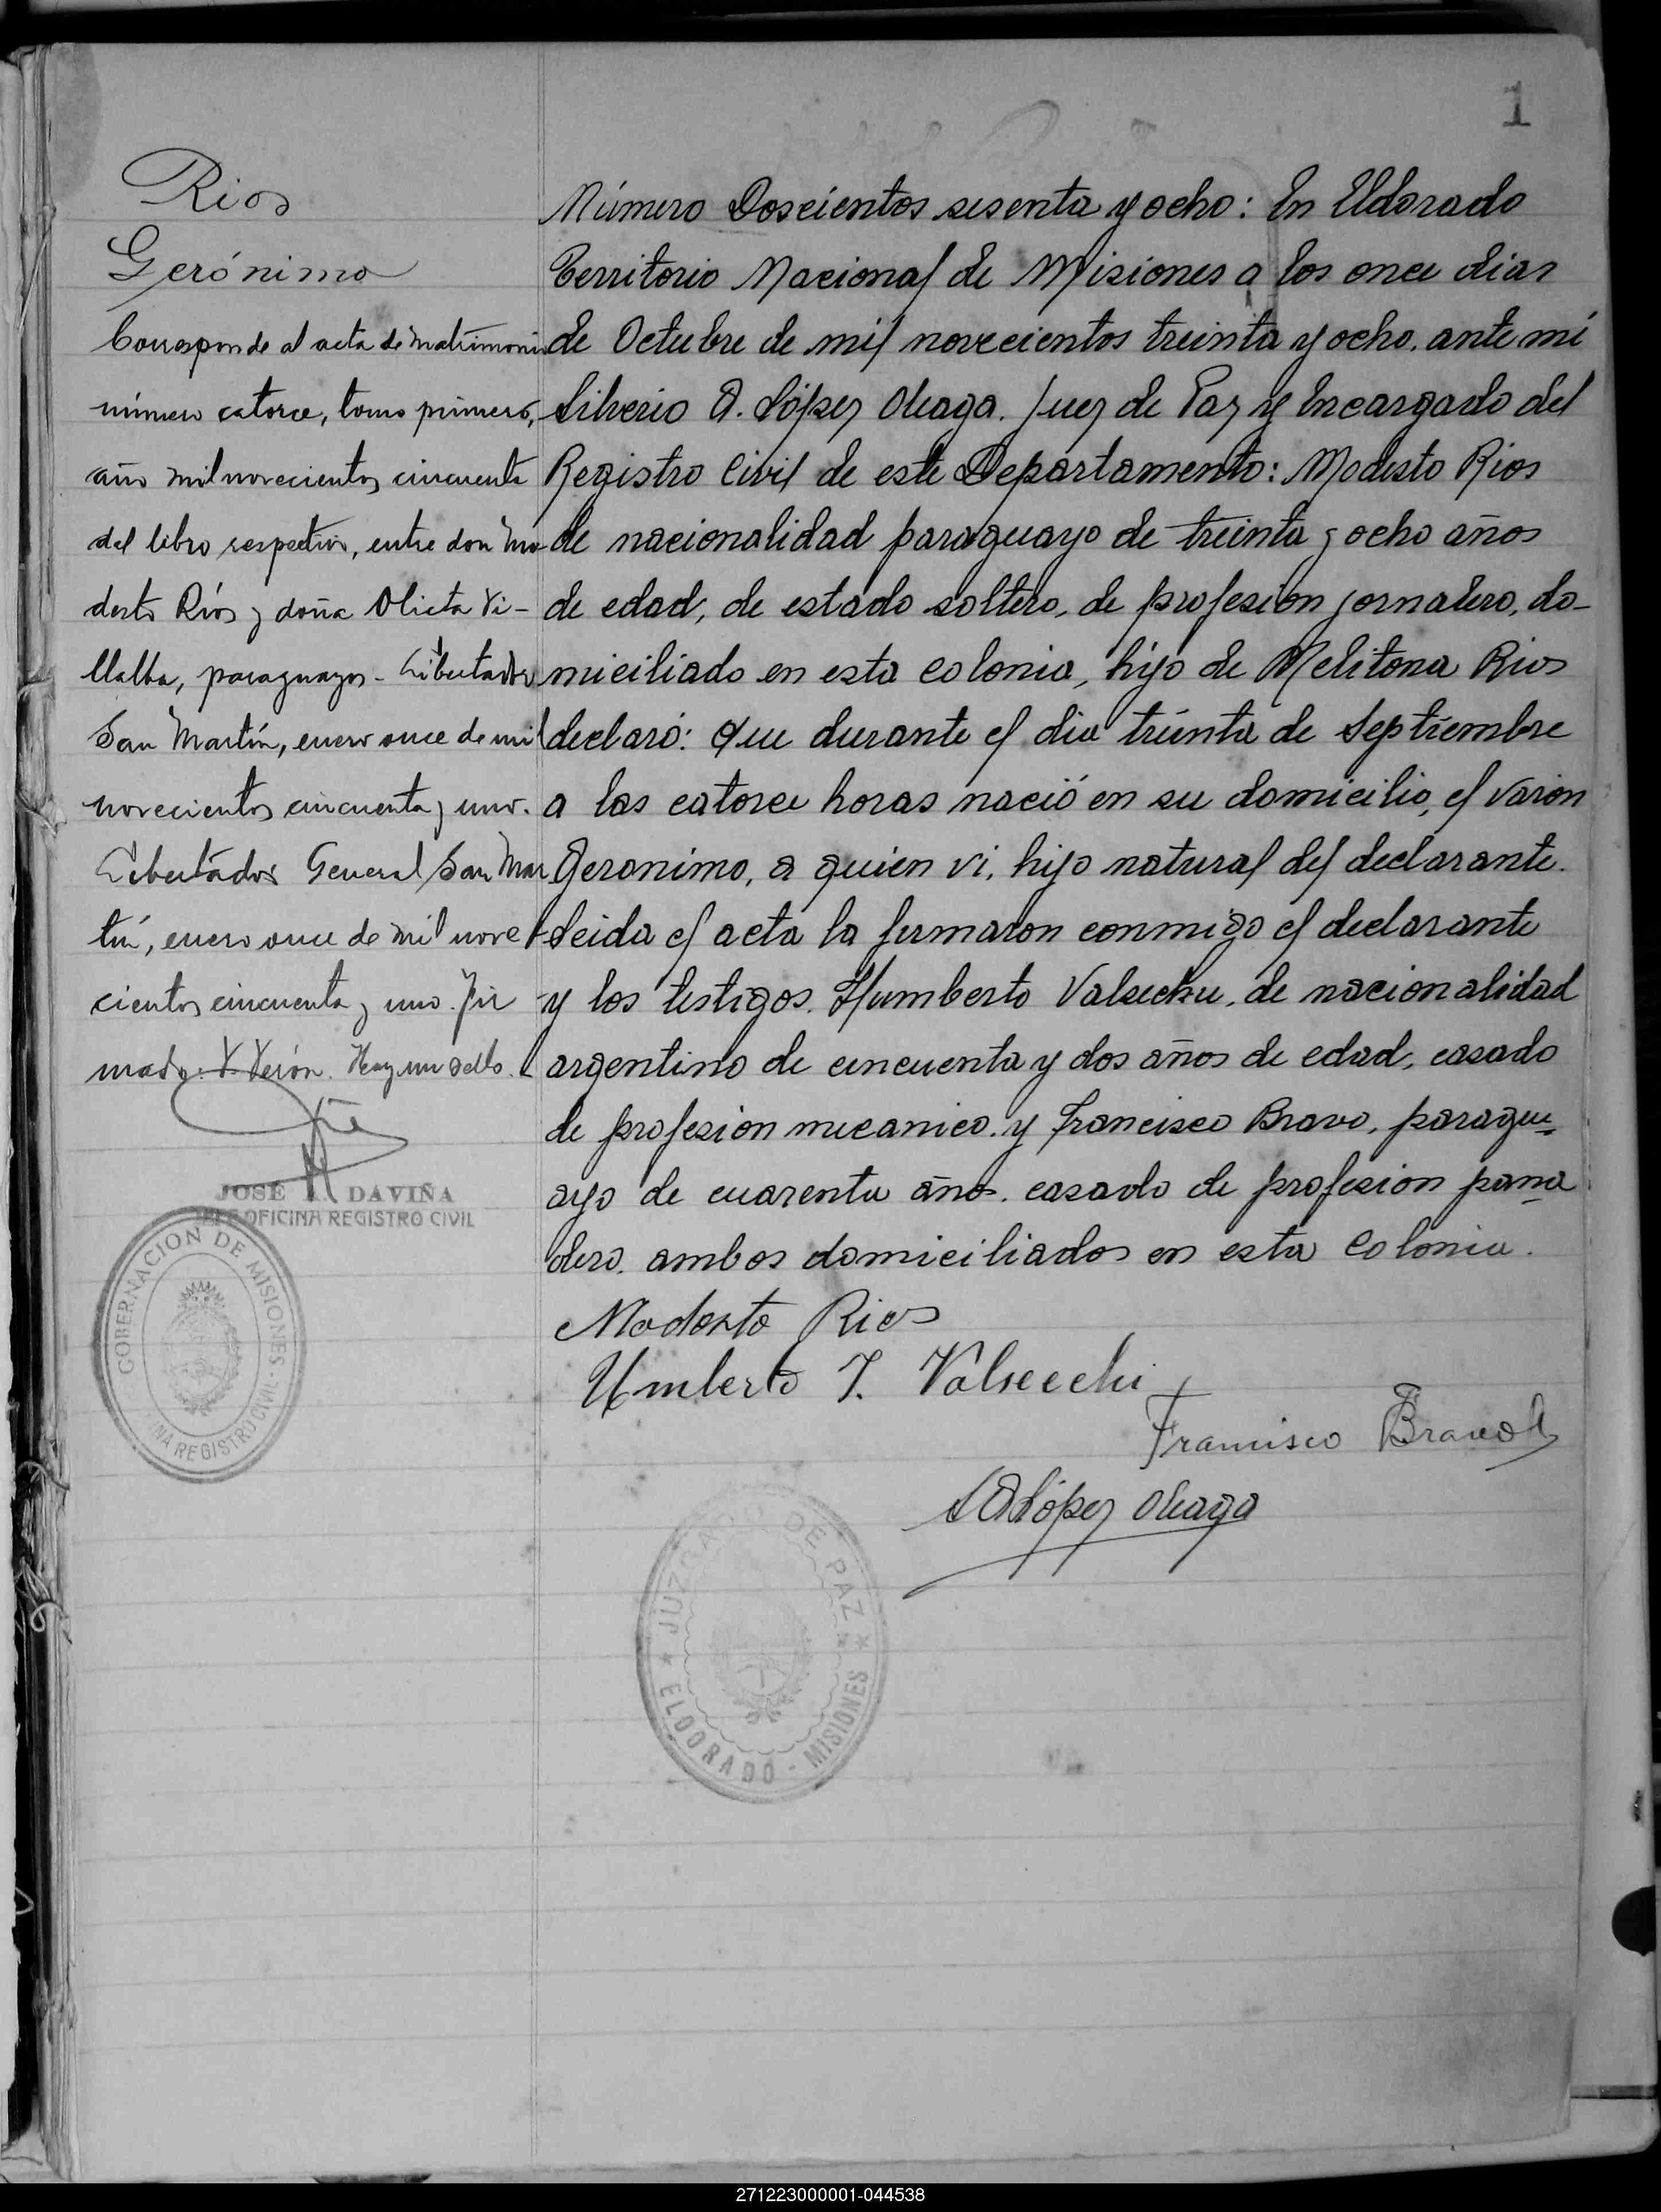 1
Rios
Gerónimo
Corresponde al acta de matrimonio
número catorce, tomo primero,
año mil novecientos cincuenta
del libro respectivo, entre don Mo-
desto Ríos y doña Olieta Vi-
llalba, paraguayos - Libertador
San Martín, enero once de mil
novecientos cincuenta y uno.
Libertador General San Mar
tín, enero once de mil nove
cientos cincuenta y uno. Fir
mado: V. Verón. Hay un sello.
JOSÉ DAVIÑA
JEFE OFICINA REGISTRO CIVIL
GOBERNACION DE MISIONES -
NA REGISTRO CIVIL -
Número Doscientos sesenta y ocho: En Eldorado
Territorio Nacional de Misiones a los once dias
de Octubre de mil novecientos treinta y ocho. ante mi
Silverio A. López Oleaga. Juez de Paz y Encargado del
Registro Civil de este Departamento: Modesto Rios
de nacionalidad paraguayo de treinta y ocho años
de edad, de estado soltero, de profesión jornalero, do-
miciliado en esta colonia, hijo de Melitona Rios
declaró: Que durante el dia treinta de Septiembre
a las catorce horas nació en su domicilio, el varón
Geronimo, a quien vi, hijo natural del declarante.
Leida el acta la firmaron conmigo el declarante
y los testigos. Humberto Valsechu, de nacionalidad
argentino de cincuenta y dos años de edad, casado
de profesion mecanico. y Francisco Bravo, paragu=
ayo de cuarenta años. casado de profesion pana
dero. ambos domiciliados en esta Colonia.
Modesto Rios
Umberto J. Valsecchi
Francisco Bravo
S A López Oleaga
JUZGADO DE PAZ
ELDORADO - MISIONES
271223000001-044538